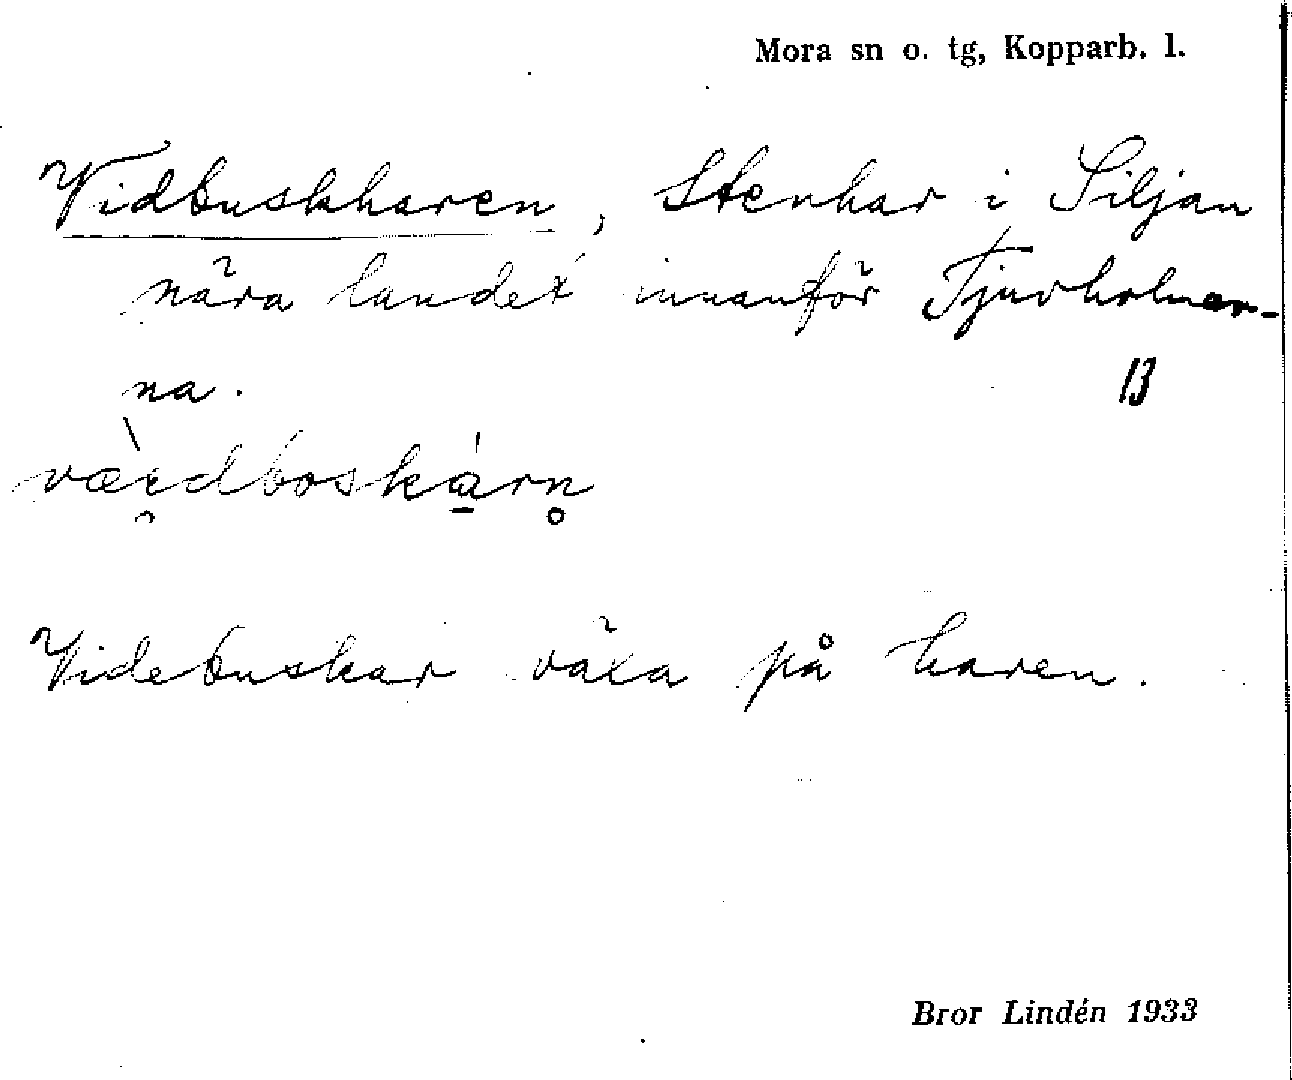 Mora sn o. tg, Kopparb. l.
Vidbuskharen, Stenhar i Siljan
nära landet innanför Tjurholmar-
na.
13
Videbuskar växa på haren.
Bror Lindén 1933